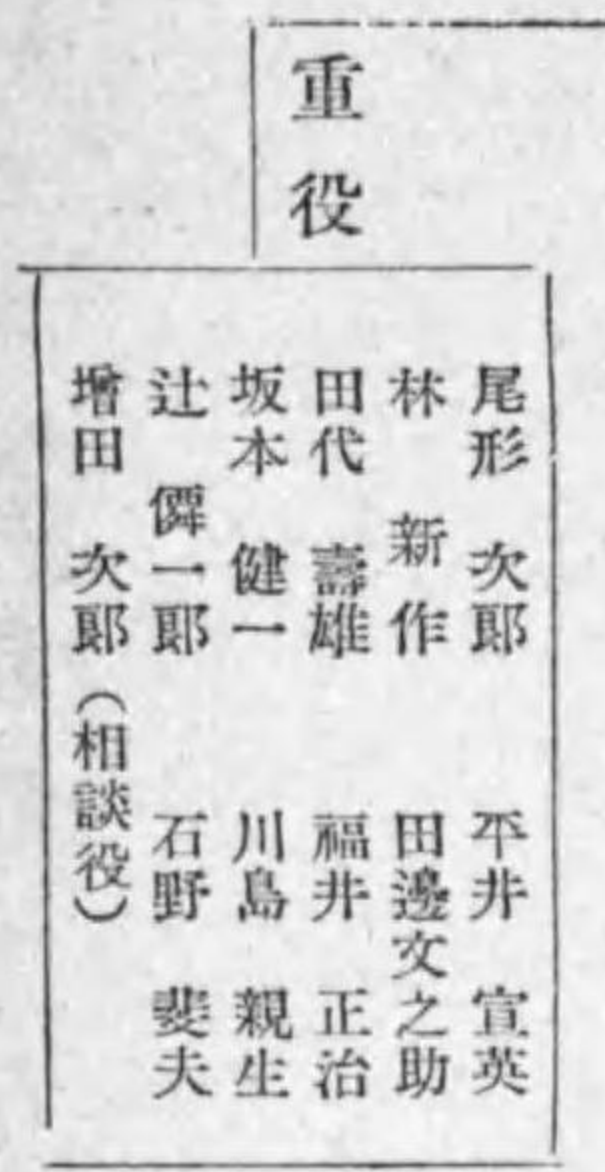 重役
尾形 次郎 平井 宣英
林 新作 田邊文之助
田代 壽雄 福井 正治
坂本 健一 川島 親生
辻 一郎 石野 斐夫
增田 次郎(相談役)